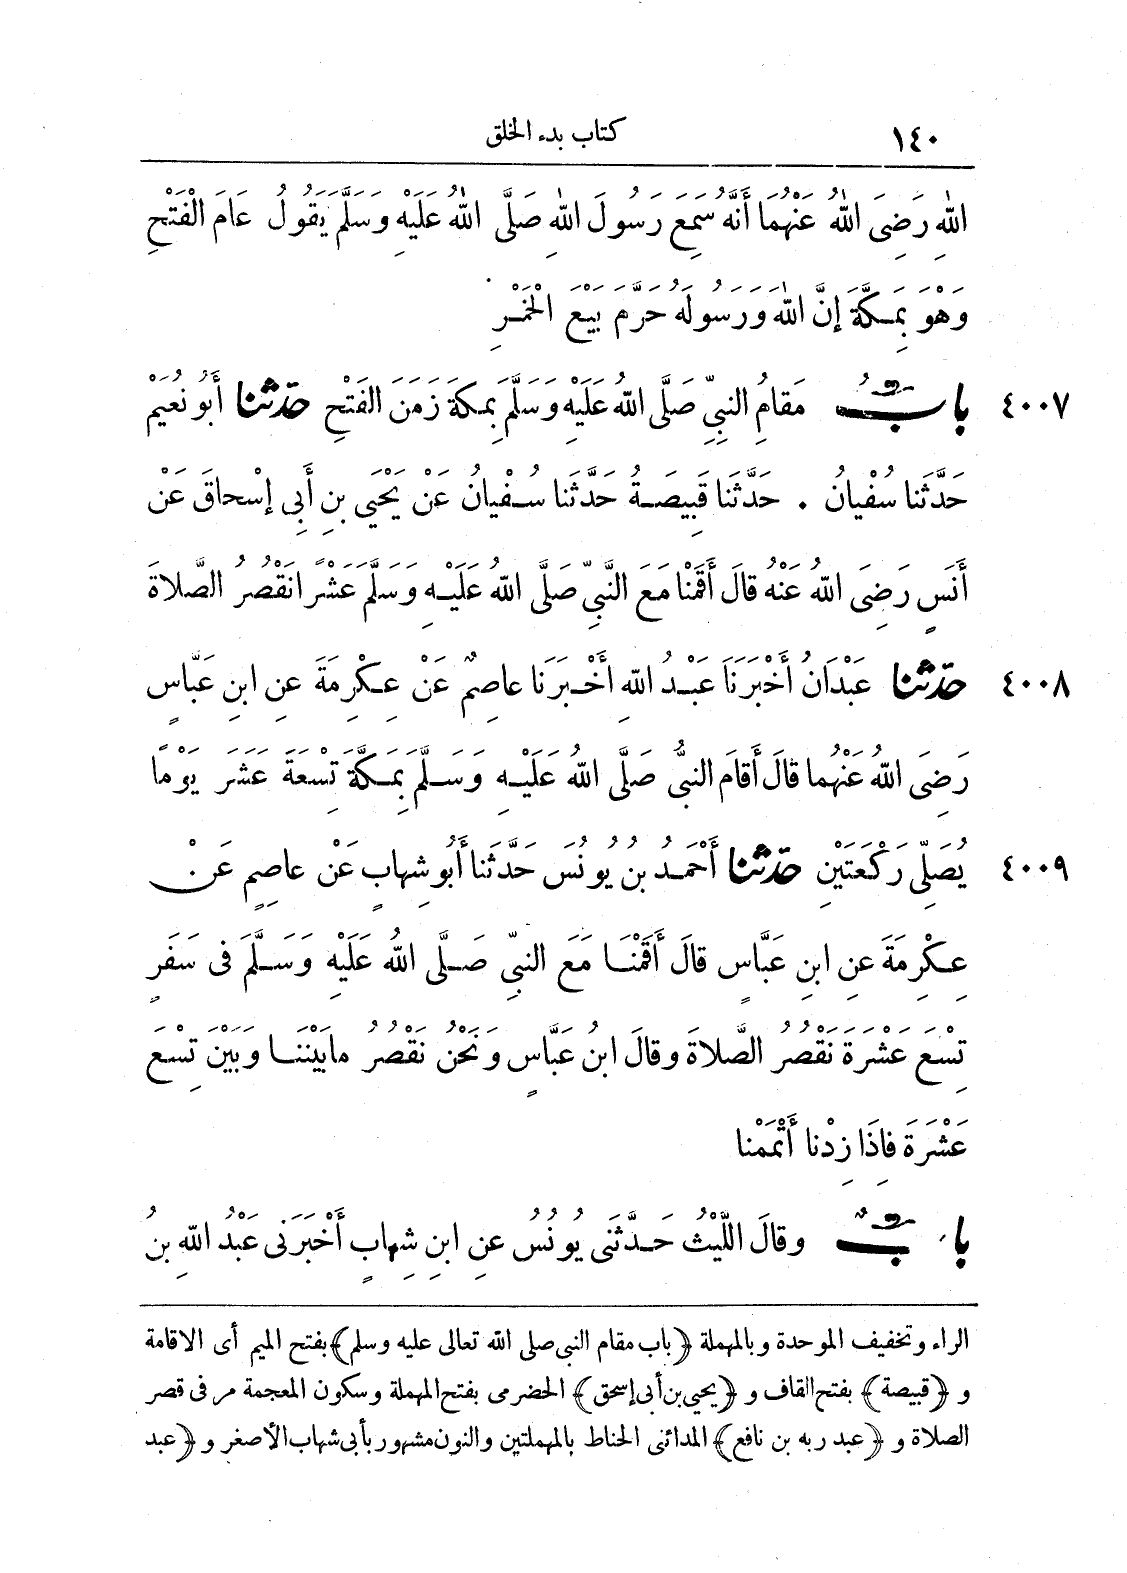 ١٤٠ كتاب بدء الخلق
اللهِ رَضِىَ اللهُ عَنْهُمَا أَنَّهُ سَمِعَ رَسُولَ اللهِ صَلَّى اللهُ عَلَيْهِ وَسَلَّمَ يَقُولُ عَامَ الْفَتْحِ
وَهْوَ بِمَكَّةَ إِنَّ اللهَ وَرَسُولَهُ حَرَّمَ بَيْعَ الْخَمْرِ
٤٠٠٧ بابُ مَقامُ النبيِّ صَلَّى اللهُ عَلَيْهِ وَسَلَّمَ بِمكةَ زَمَنَ الفَتْحِ حَدّثنا أَبُو نُعَيْمٍ
حَدَّثَنا سُفْيانُ . حَدَّثَنا قَبِيصَةُ حَدَّثَنا سُفْيانُ عَنْ يَحْيَى بنِ أَبِى إِسْحاقَ عَنْ
أَنَسٍ رَضِىَ اللهُ عَنْهُ قالَ أَقَمْنا مَعَ النَّبِيِّ صَلَّى اللهُ عَلَيْهِ وَسَلَّمَ عَشْرًا نَقْصُرُ الصَّلاةَ
٤٠٠٨ حَدّثنا عَبْدَانُ أَخْبَرَنَا عَبْدُ اللهِ أَخْبَرَنَا عاصِمٌ عَنْ عِكْرِمَةَ عنِ ابنِ عَبَّاسٍ
رَضِىَ اللهُ عَنْهُما قالَ أَقامَ النبيُّ صَلَّى اللهُ عَلَيْهِ وَسَلَّمَ بِمَكَّةَ تِسْعَةَ عَشَرَ يَوْمًا
٤٠٠٩ يُصَلِّى رَكْعَتَيْنِ حَدّثنا أَحْمَدُ بنُ يُونُسَ حَدَّثَنا أَبُو شِهابٍ عَنْ عاصِمٍ عَنْ
عِكْرِمَةَ عنِ ابنِ عَبَّاسٍ قالَ أَقَمْنَا مَعَ النبيِّ صَلَّى اللهُ عَلَيْهِ وَسَلَّمَ فى سَفَرٍ
تِسْعَ عَشْرَةَ نَقْصُرُ الصَّلاةَ وقالَ ابنُ عَبَّاسٍ وَنَحْنُ نَقْصُرُ مابَيْنَنَا وبَيْنَ تِسْعَ
عَشْرَةَ فَاِذَا زِدْنا أَتْمَمْنا
بابٌ وقالَ اللَّيْثُ حَدَّثَنى يُونُسُ عنِ ابنِ شِهابٍ أَخْبَرَنى عَبْدُ اللهِ بنُ
الراء وتخفيف الموحدة وبالمهملة ﴿باب مقام النبى صلى الله تعالى عليه وسلم﴾ بفتح الميم أى الاقامة
و ﴿قبيصة﴾ بفتح القاف و ﴿يحيى بن أبى إسحق﴾ الحضرمى بفتح المهملة وسكون المعجمة مر فى قصر
الصلاة و ﴿عبد ربه بن نافع﴾ المدائنى الحناط بالمهملتين والنون مشهور بأبى شهاب الأصغر و ﴿عبد